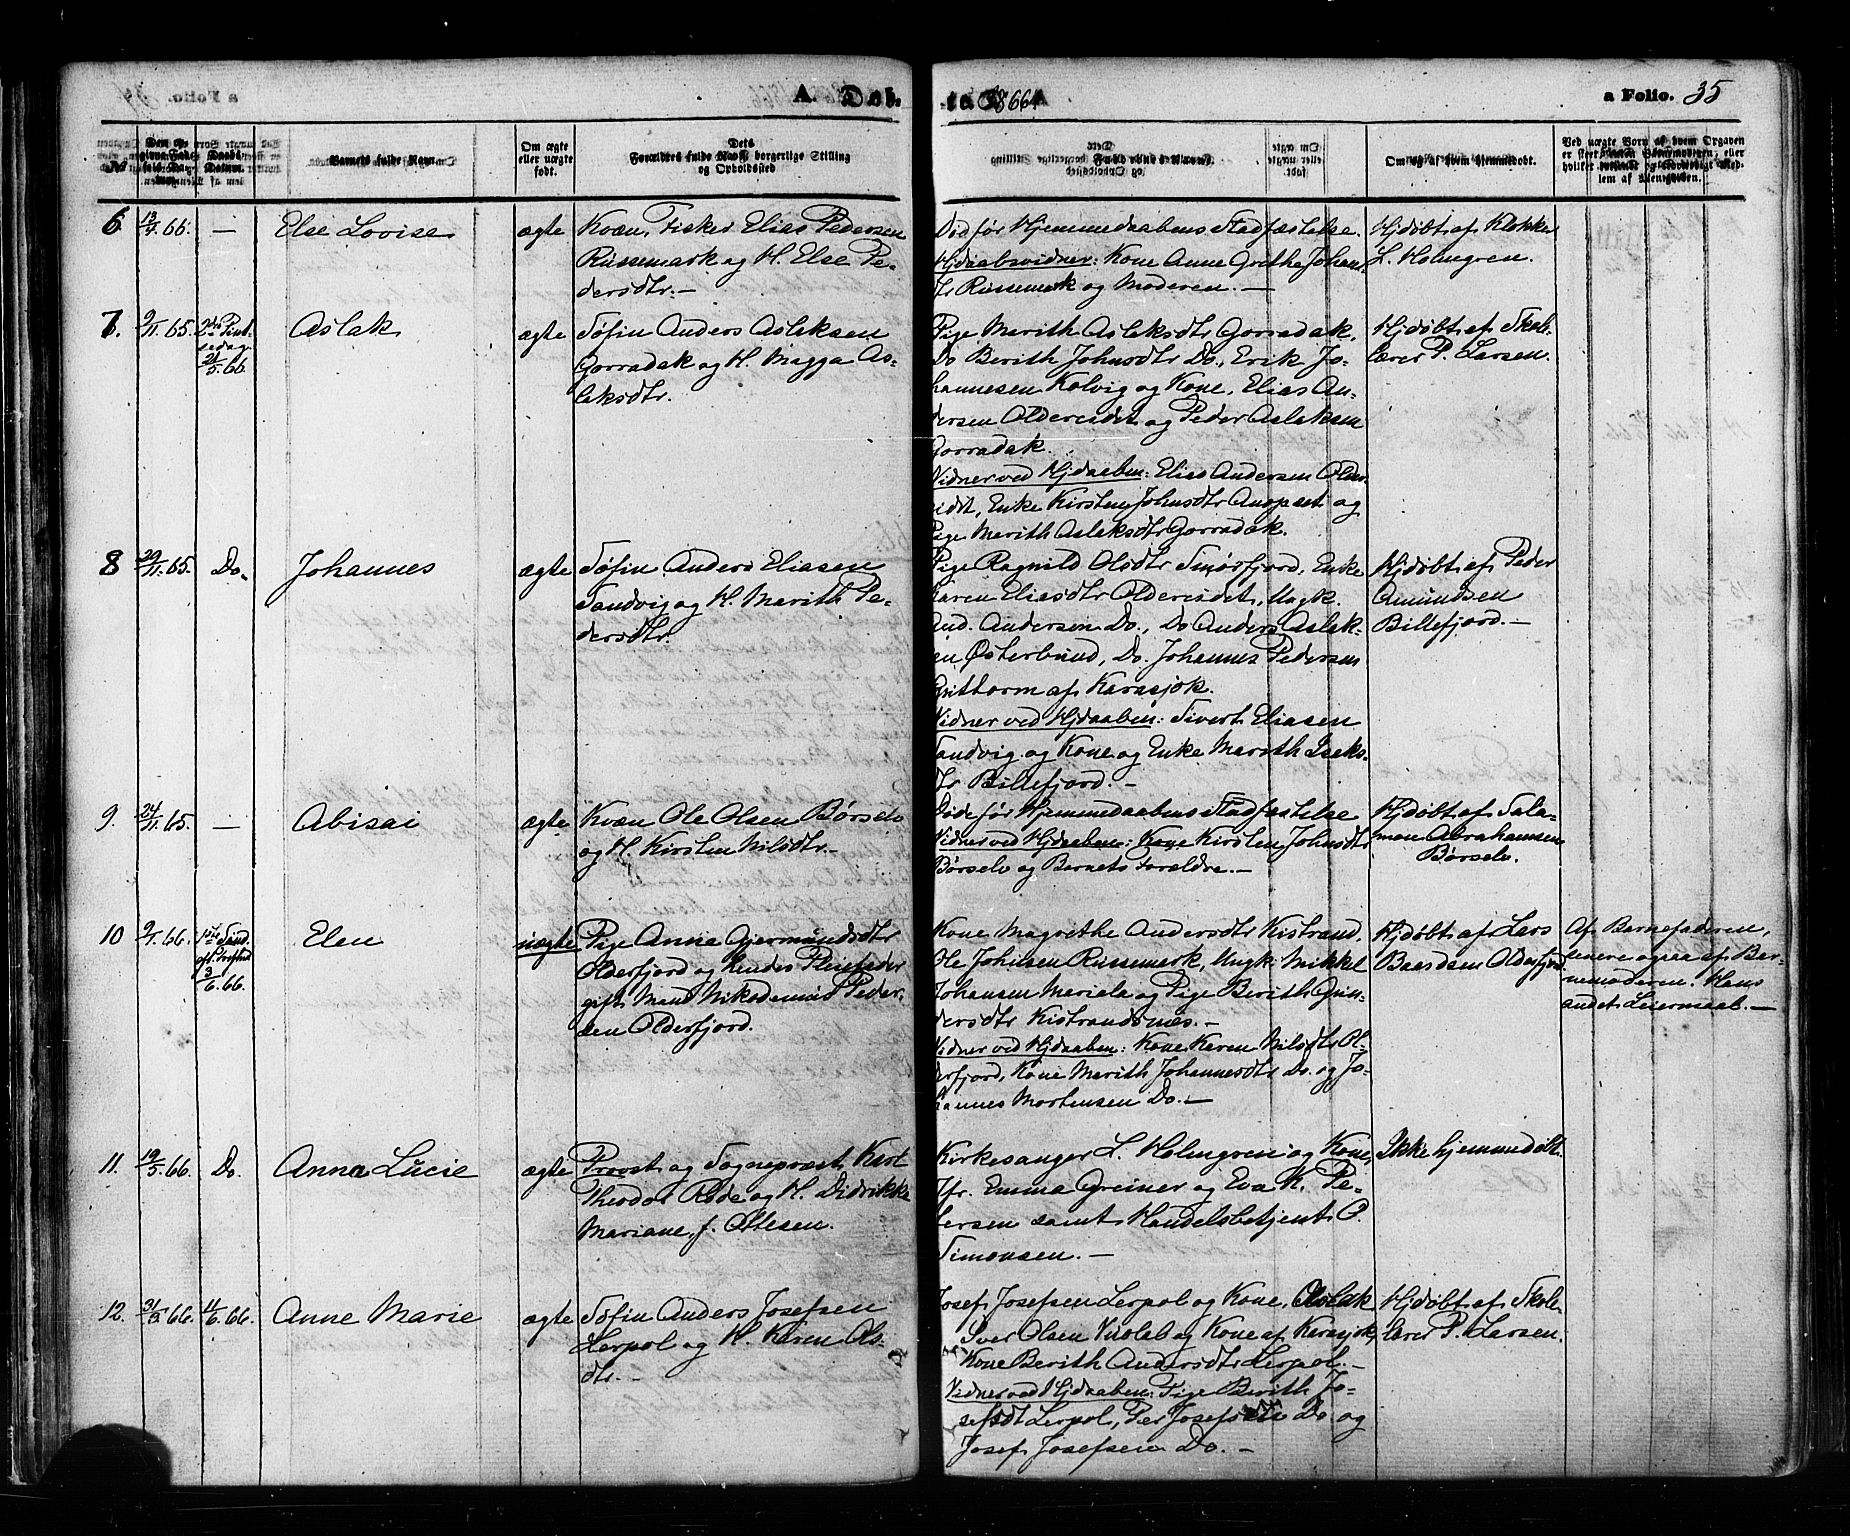 A. Døb-
te 1866.
a Folio. 35
No
Barnets fulde Navn.
Om ægte
eller uægte
født.
Dets
Forældres fulde Navn, borgerlige Stilling
og Opholdssted
Om og af hvem hjemmedøbt.
Ved uægte Børn af hvem Opgaven
lem af Menigheden.
6 13/4 66. — Else Lovise ægte Kvæn, Fisker Elias Pedersen
Russemark og H. Else Pe-
dersdtr. —
Død før Hjemmedaabens Stadfæstelse.
Hjdaabsvidner: Kone Anne Grethe Johans
dtr Russemark og Moderen. —
Hjdøbt af Klokker
L. Holmgren.
7. 9/11 65. 2den Pint-
sedag
21/5 66
Aslak ægte Søfin Anders Aslaksen
Gorradak og H. Magga As-
laksdtr.
Pige Marith Aslaksdtr Gorradak,
Do Berith Johnsdtr Do., Erik Jo-
hannesen Kolvig og Kone, Elias An-
dersen Oldereidet og Peder Aslaksen
Gorradak.
Vidner ved Hjdaaben: Elias Andersen Olde-
reidet, Enke Kirsten Johnsdtr Anopset og
Pige Marith Aslaksdtr Gorradak.
Hjdøbt af Skol-
lærer P. Larsen.
8 29/11 65. Do. Johannes ægte Søfin Anders Eliasen
Sandvig og H. Marith Pe-
dersdtr.
Pige Ragnild Olsdtr Smørfjord, Enke
Karen Eliasdtr Oldereidet, Ungk.
And. Andersen Do., Do Anders Aslak-
sen Østerbund, Do. Johannes Pedersen
Guttorm af Karasjok.
Vidner ved Hjdaaben: Sivert Eliasen
Sandvig og Kone og Enke Marith Isaks-
dtr Billefjord. —
Hjdøbt af Peder
Amundsen
Billefjord. —
9. 24/11 65. — Abisai ægte Kvæn Ole Olsen Børselv
og H. Kirsten Nilsdtr. —
Døde før Hjemmedaabens Stadfæstelse
Vidner ved Hjdaaben: Kone Kirsten Johnsdtr
Børselv og Barnets Forældre. —
Hjdøbt af Sala-
mon Abrahamsen
Børselv.
10 9/1 66. 1ste Sønd.
eft. Trefold
3/6 66.
Elen uægte Pige Anne Gjermundsdtr
Olderfjord og hendes Pleiefader
gift Mand Nikodemus Peder-
sen Olderfjord.
Kone Magrethe Andersdtr Kistrand,
Ole Johnsen Russemark, Ungk. Mikkel
Johansen Mariela og Pige Berith Gun-
dersdtr Kistrandsnæs. —
Vidner ved Hjdaaben: Kone Karen Nilsdtr Ol-
derfjord, Kone Marith Johannesdtr Do. og Jo-
hannes Mortensen Do. —
Hjdøbt af Lars
Baardsen Olderfjord
Af Barnefaderen,
senere ogsaa af Bar-
nemoderen. Hans
andet Leiermaal. —
11. 19/5 66. Do. Anna Lucie ægte Provst og Sognepræst Kurt
Theodor Rode og H. Didrikke
Mariane, f. Ottesen.
Kirkesanger L. Holmgren og Kone,
Jfr. Emma Greiner og Eva K. Pe-
tersen samt Handelsbetjent O.
Simonsen. —
Ikke hjemmedøbt.
12. 31/3 66. 11/6 66. Anne Marie ægte Søfin Anders Josefsen
Lerpol og H. Karen Ols-
dtr. —
Josef Josefsen Lerpol og Kone, Aslak
Iver Olsen Vuolab og Kone af Karasjok,
Kone Berith Andersdtr Lerpol. —
Vidner ved Hjdaaben: Pige Berith Jo-
sefsdt Lerpol, Per Josefsen Do og
Josef Josefsen Do. —
Hjdøbt af Skol-
lærer P. Larsen.